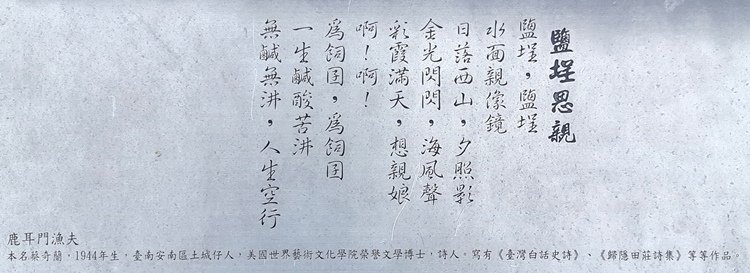 鹽埕思親
鹽埕,鹽埕
水面親像鏡
日落西山,夕照影
金光閃閃,海風聲
彩霞滿天,想親娘
啊!啊!
為飼囝,為飼囝
一生鹹酸苦汫
無鹹無汫,人生空行
鹿耳門漁夫
本名蔡奇蘭,1944年生,臺南安南區土城仔人,美國世界藝術文化學院榮譽文學博士,詩人。寫有《臺灣白話史詩》、《歸隱田莊詩集》等等作品。